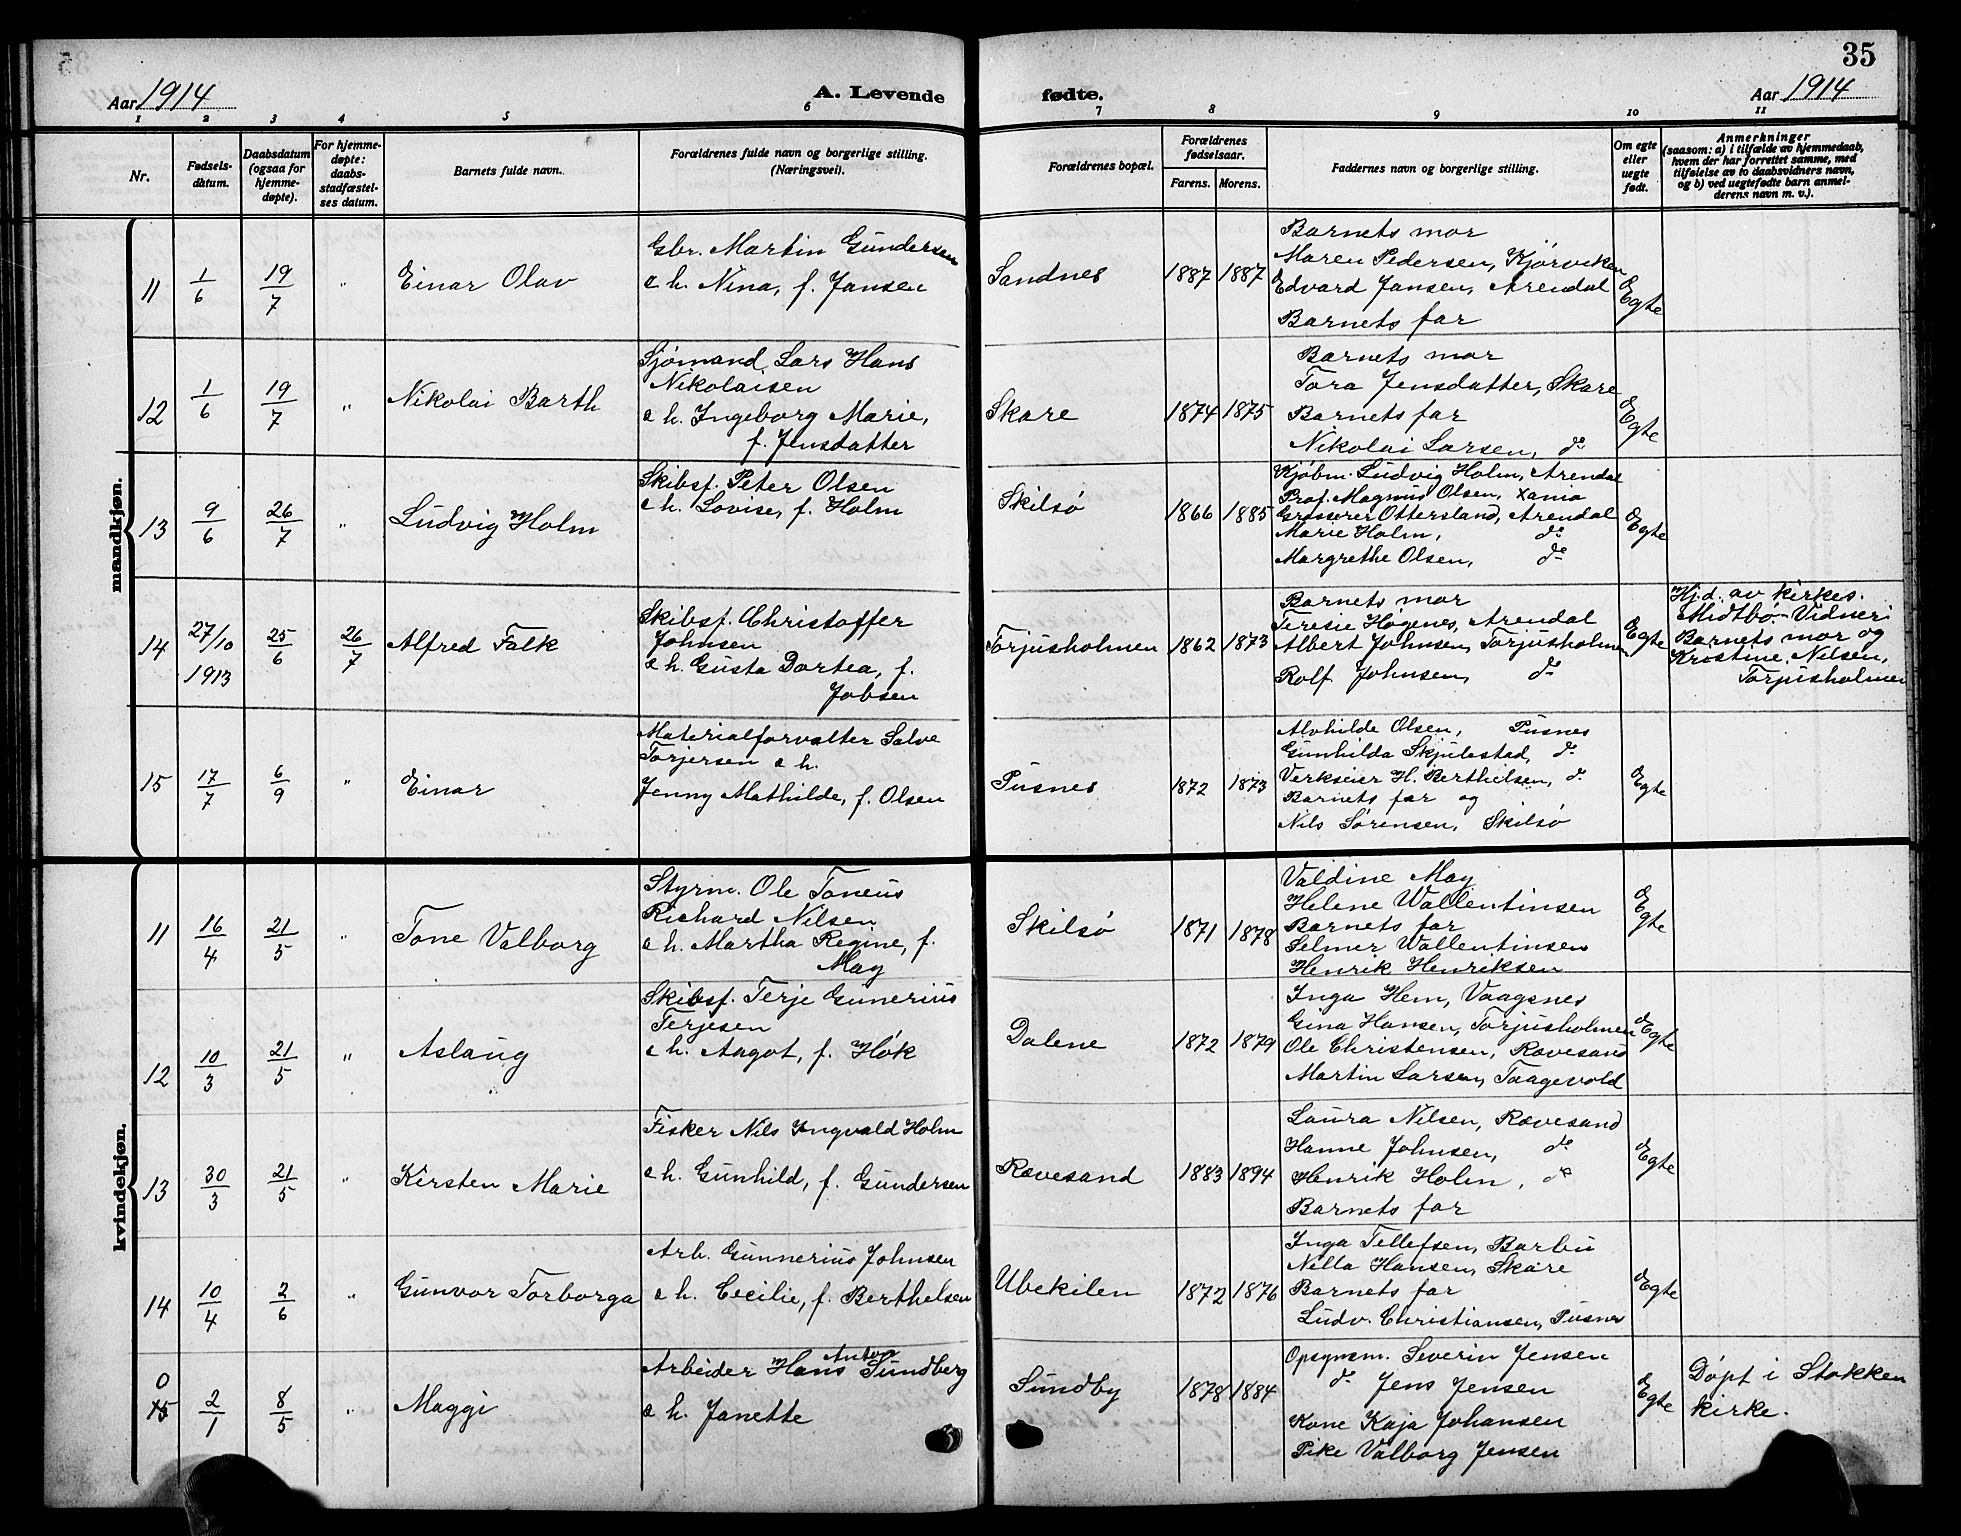 35
Aar 1914
A. Levende fødte.
Aar 1914
1 2 3 4 5 6 7 8 9 10 11
Nr.
Fødsels-
datum.
Daabsdatum
(ogsaa for
hjemme-
døpte).
For hjemme-
døpte:
daabs-
stadfæstel-
ses datum.
Barnets fulde navn.
Forældrenes fulde navn og borgerlige stilling.
(Næringsvei).
Forældrenes bopæl.
Forældrenes
fødselsaar.
Farens. Morens.
Faddernes navn og borgerlige stilling.
Om egte
eller
uegte
født.
Anmerkninger
(saasom: a) i tilfælde av hjemmedaab,
hvem der har forrettet samme, med
tilføielse av to daabsvidners navn,
og b) ved uegtefødte barn anmel-
derens navn m. v.).
mandkjøn.
11 1/6 19/7 " Einar Olav
Gbr. Martin Gundersen
e h. Nina, f. Jansen
Sandnes 1887 1887
Barnets mor
Maren Pedersen, Kjørviken
Edvard Jansen, Arendal
Barnets far
Egte
12 1/6 19/7 " Nikolai Barth
Sjømand Lars Hans
Nikolaisen
e h. Ingeborg Marie,
f. Jensdatter
Skare 1874 1875
Barnets mor
Tora Jensdatter, Skare
Barnets far
Nikolai Larsen, do
Egte
13 9/6 26/7 " Ludvig Holm
Skibsf. Peter Olsen
e h. Lovise, f. Holm
Skilsø 1866 1885
Kjøbm. Ludvig Holm, Arendal
Prof. Magnus Olsen, Xania
Grosserer Ottersland, Arendal
Marie Holm, do
Margrethe Olsen, do
Egte
14 27/10 1913 25/6 26/7 Alfred Falk
Skibsf. Christoffer
Johnsen
e h. Gusta Dortea, f.
Jobsen
Torjusholmen 1862 1873
Barnets mor
Teresie Høgenes, Arendal
Albert Johnsen, Torjusholmen
Rolf Johnsen, do
Egte
Hj.d. av kirkes.
Midtbø. Vidner:
Barnets mor og
Kristine Nilsen,
Torjusholmen
15 17/7 6/9 " Einar
Materialforvalter Salve
Torjersen e h.
Jenny Mathilde, f. Olsen
Pusnes 1872 1873
Alvhilde Olsen, Pusnes
Gunhilda Skjulestad, do
Verkseier H. Berthelsen, do
Barnets far og
Nils Sørensen, Skilsø
Egte
kvindekjøn.
11 16/4 21/5 " Tone Valborg
Styrm. Ole Toneus
Richard Nilsen
e h. Martha Regine, f.
May
Skilsø 1871 1878
Valdine May
Helene Wallentinsen
Barnets far
Selmer Wallentinsen
Henrik Henriksen
Egte
12 10/3 21/5 " Aslaug
Skibsf. Terje Gunerius
Terjesen
e h. Aagot, f. Høk
Dalene 1872 1879
Inga Hem, Vaagsnes
Gina Hansen, Torjusholmen
Ole Christensen, Rævesand
Martin Larsen, Taagevold
Egte
13 30/3 21/5 " Kirsten Marie
Fisker Nils Ingvald Holm
e h. Gunhild, f. Gundersen
Rævesand 1883 1894
Laura Nilsen, Rævesand
Hanne Johnsen, do
Henrik Holm, do
Barnets far
Egte
14 10/4 2/6 " Gunvor Torborga
Arb. Gunnerius Johnsen
e h. Cecilie, f. Berthelsen
Ubekilen 1872 1876
Inga Tellefsen, Barbu
Nilla Hansen, Skare
Barnets far
Ludv. Christiansen, Pusnes
Egte
0
15 2/1 8/5 " Maggi
Arbeider Hans Anton Sundberg
e h. Janette
Sundby 1878 1884
Opsynsm. Severin Jensen
do Jens Jensen
Kone Kaja Johansen
Pike Valborg Jensen
Egte
Døpt i Stokken
kirke.